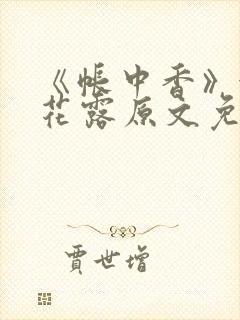 《帐中香》
花露原文免
贾世增